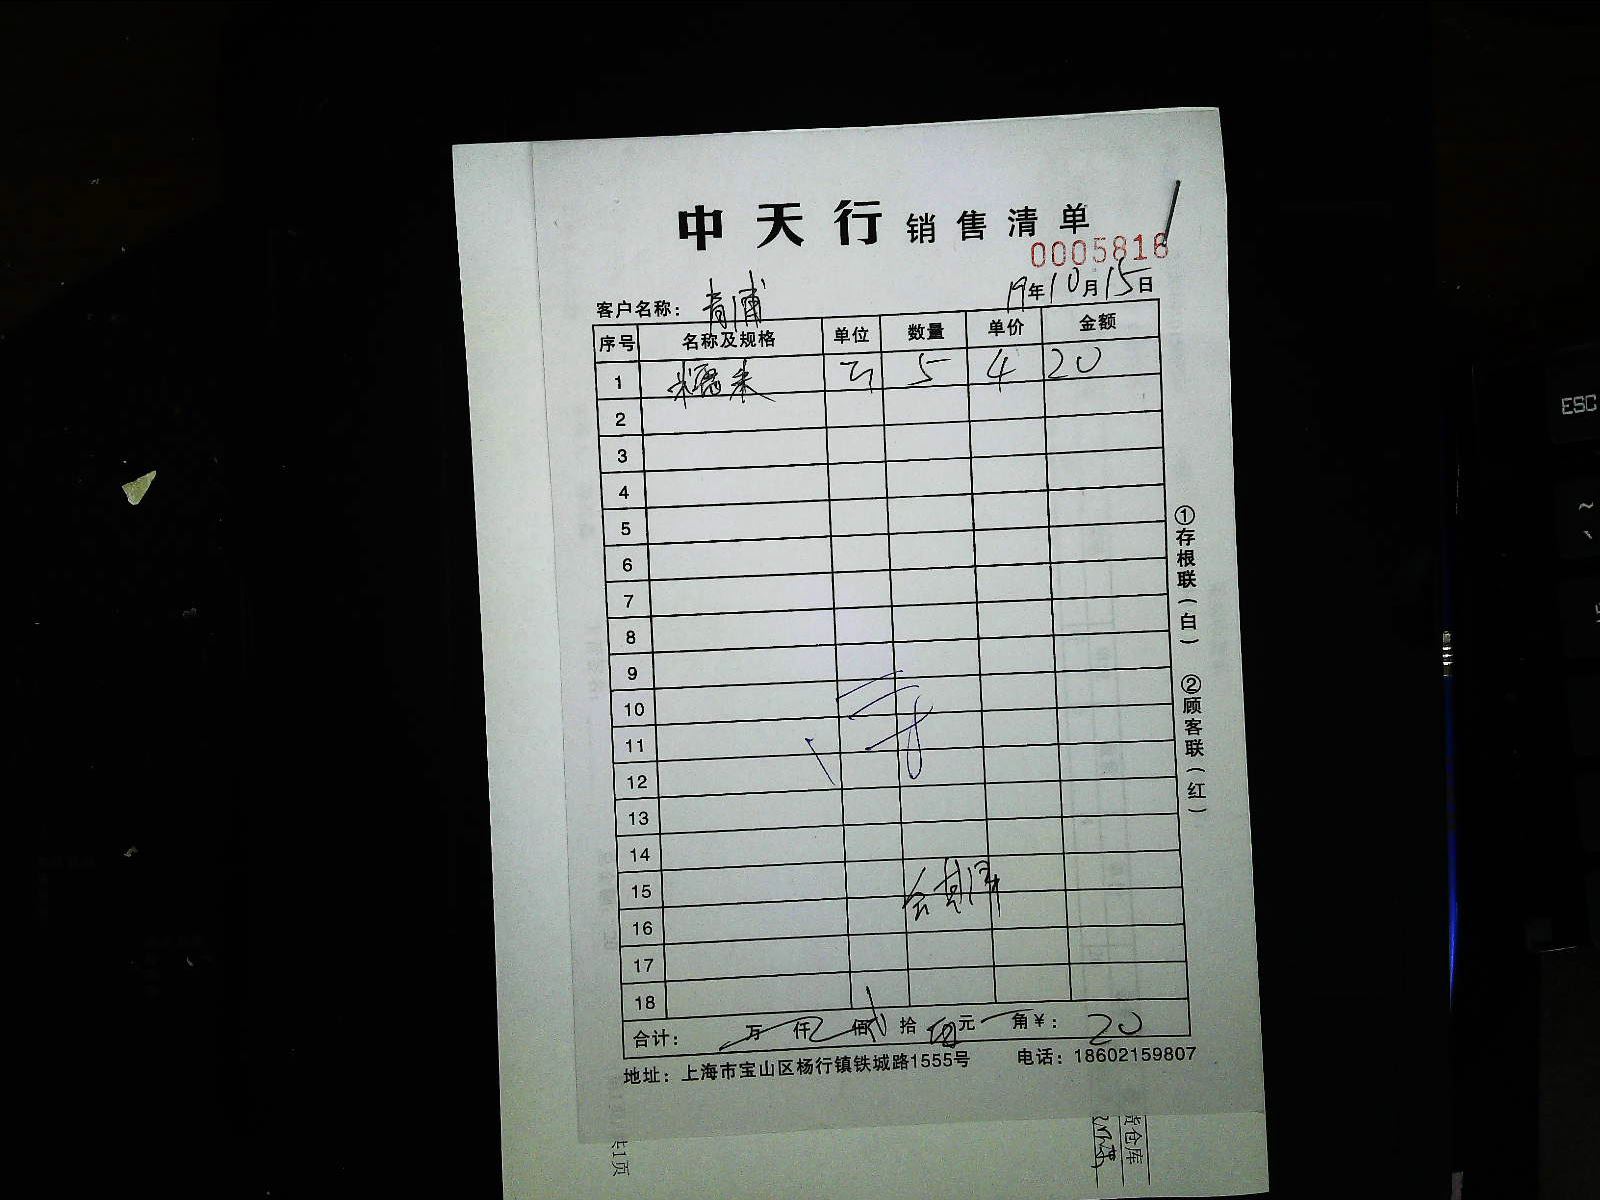 中天行销售清单
0005816
客户名称: 青浦 19年10月15日
序号 名称及规格 单位 数量 单价 金额
1 糯米 斤 5 4 20
2
3
4
5
6
7
8
9
10
11
12
13
14
15
16
17
18
合计: 万 仟 佰 贰拾 元 角 ¥: 20
地址: 上海市宝山区杨行镇铁城路1555号 电话: 18602159807
①存根联(白) ②顾客联(红)
共1页
货仓库
ESC